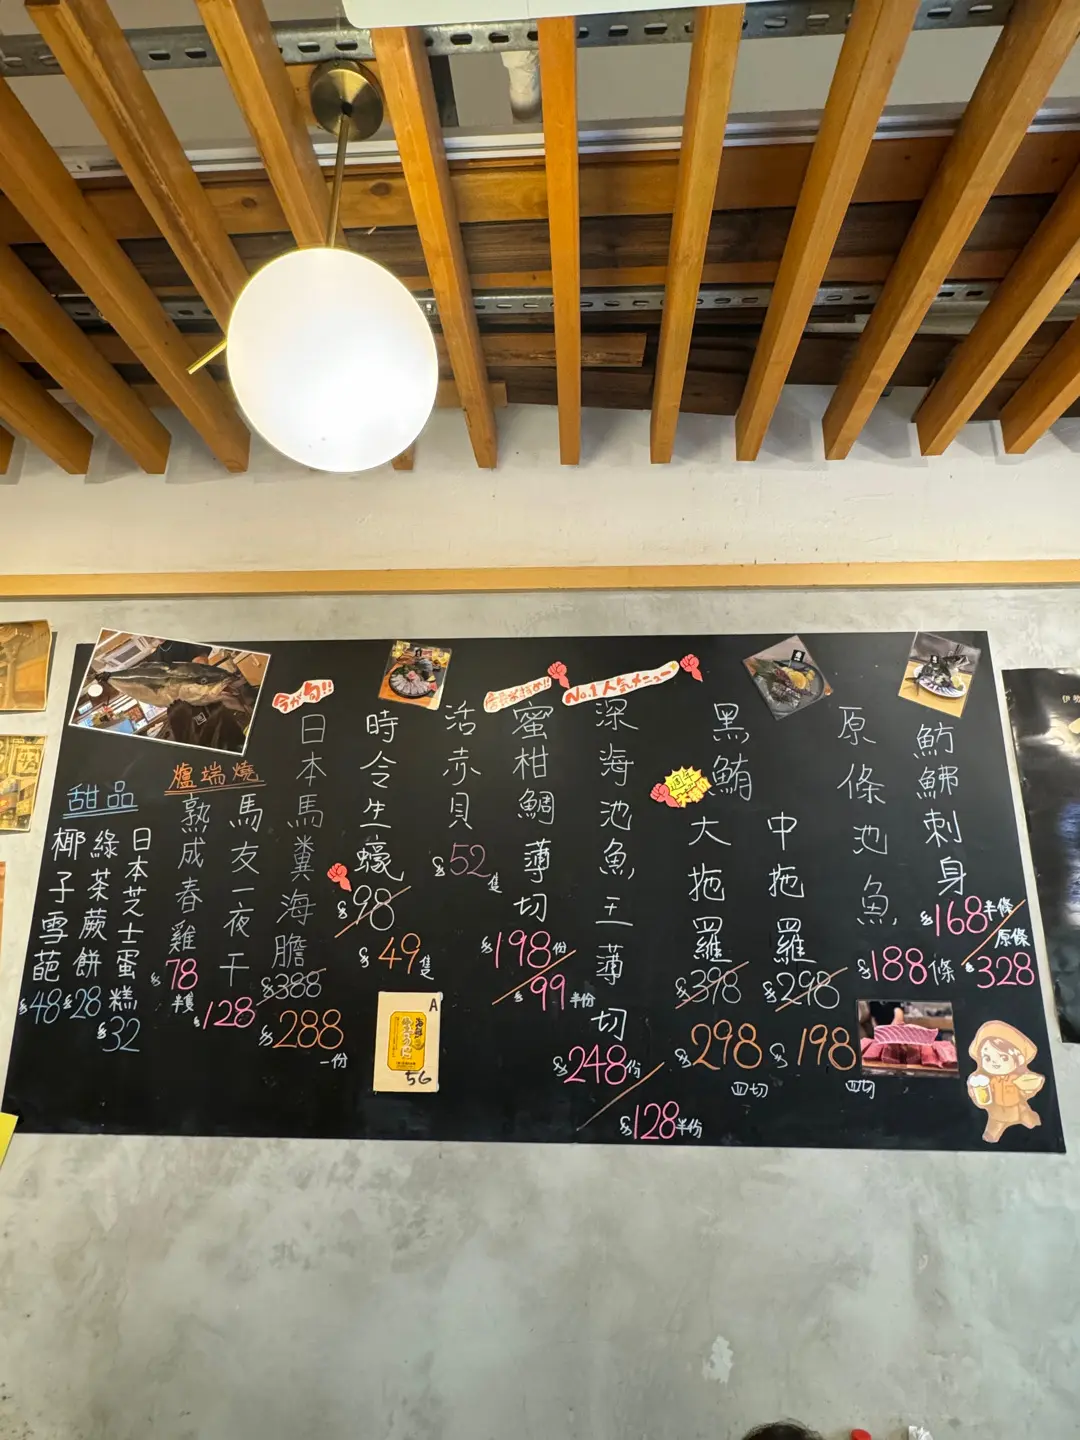 魴鮄刺身
$168半條
原條
$328
原條池魚
$188條
黑鮪
週年
中拖羅
$298
$198
四切
大拖羅
$398
$298
四切
No.1人気メニュー
深海池魚王薄切
$248份
$128半份
蜜柑鯛薄切
$198份
$99半份
活赤貝
$52隻
時令生蠔
$98
$49隻
A
海鮮
56
今が旬!!
日本馬糞海膽
$388
$288
一份
爐端燒
馬友一夜干
$128
熟成春雞
$78
半隻
甜品
日本芝士蛋糕
$32
綠茶蕨餅
$28
椰子雪葩
$48